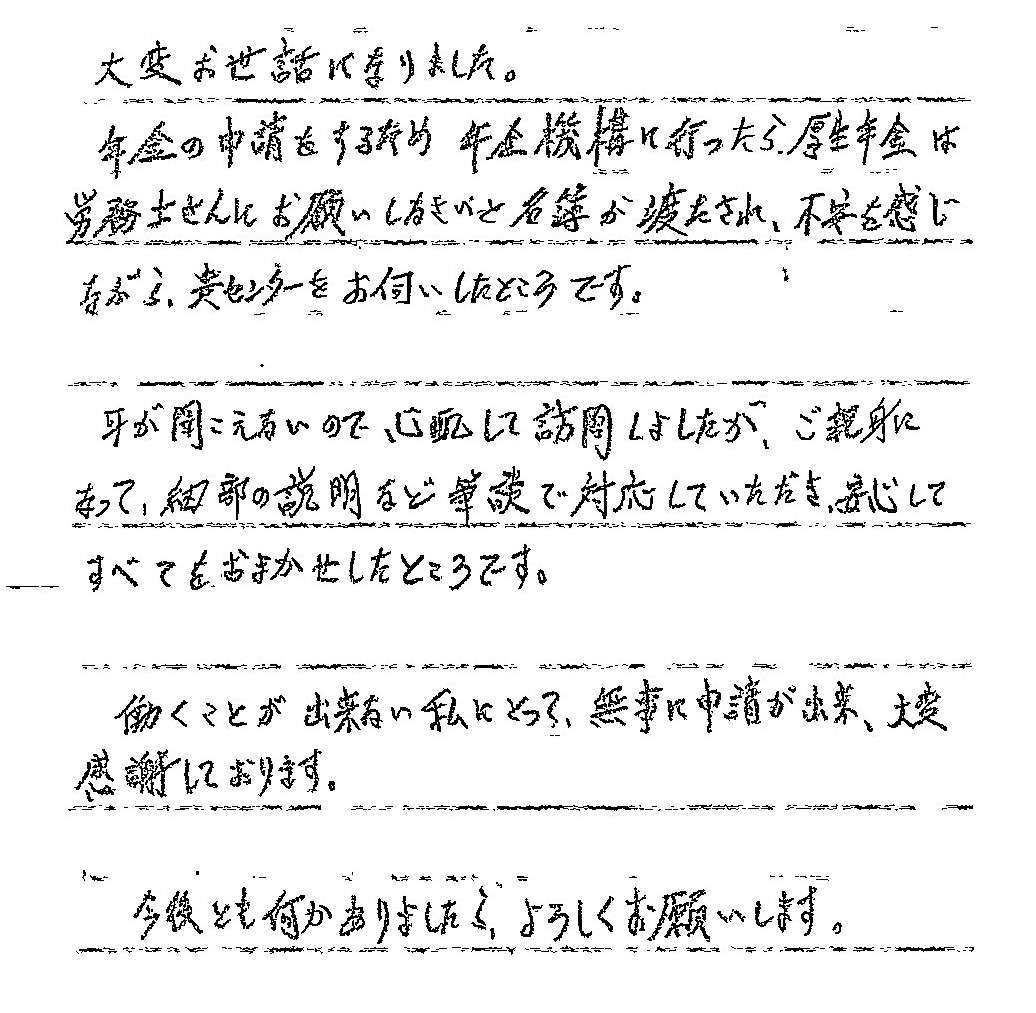 大変お世話になりました。
年金の申請をするため年金機構に行ったら、厚生年金は
労務士さんにお願いしなさいと名簿が渡たされ、不安を感じ
ながら、貴センターをお伺いしたところです。
耳が聞こえないので、心配して訪問しましたが、ご親身に
なって、細部の説明など筆談で対応していただき、安心して
すべてをおまかせしたところです。
働くことが出来ない私にとって、無事に申請が出来、大変
感謝しております。
今後とも何かありましたら、よろしくお願いします。